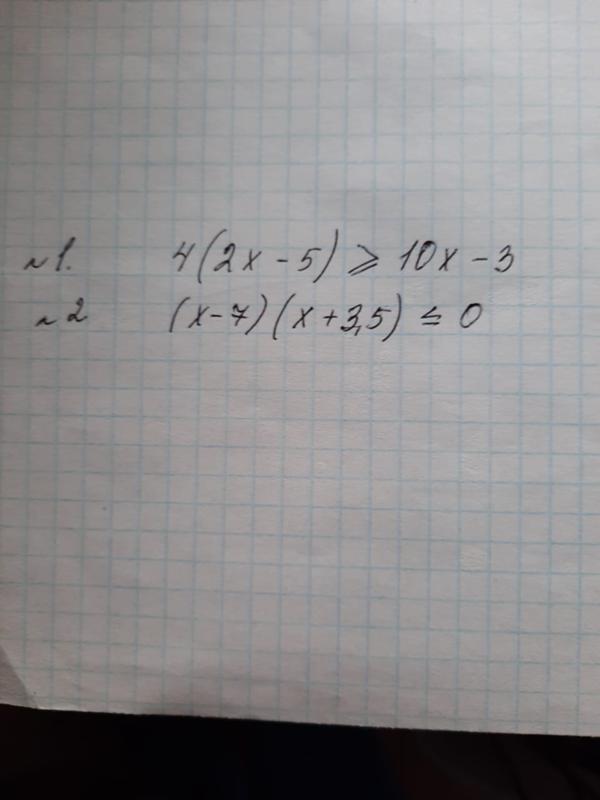 №1. 4(2x-5) ⩾ 10x-3
№2 (x-7)(x+3,5) ≤ 0